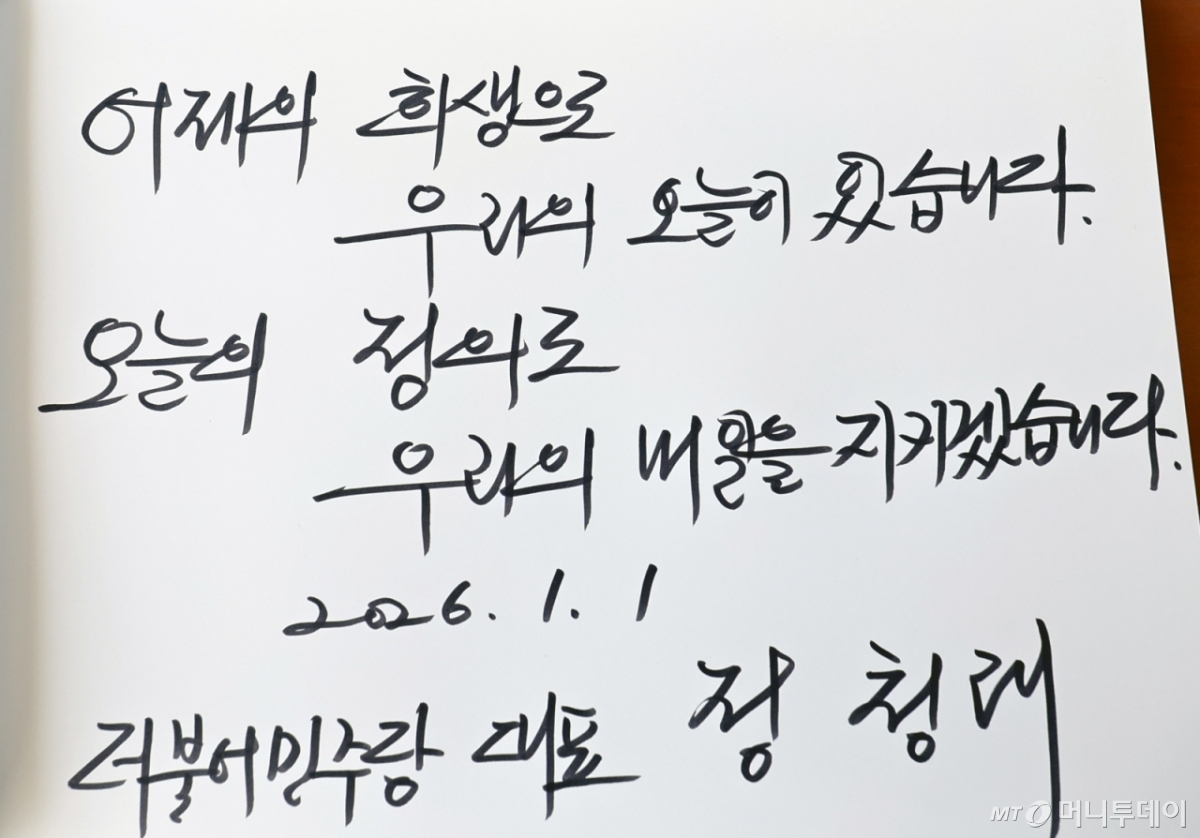 어제의 희생으로
우리의 오늘이 있습니다.
오늘의 정의로
우리의 내일을 지키겠습니다.
2026. 1. 1
더불어민주당 대표 정청래
MT 머니투데이